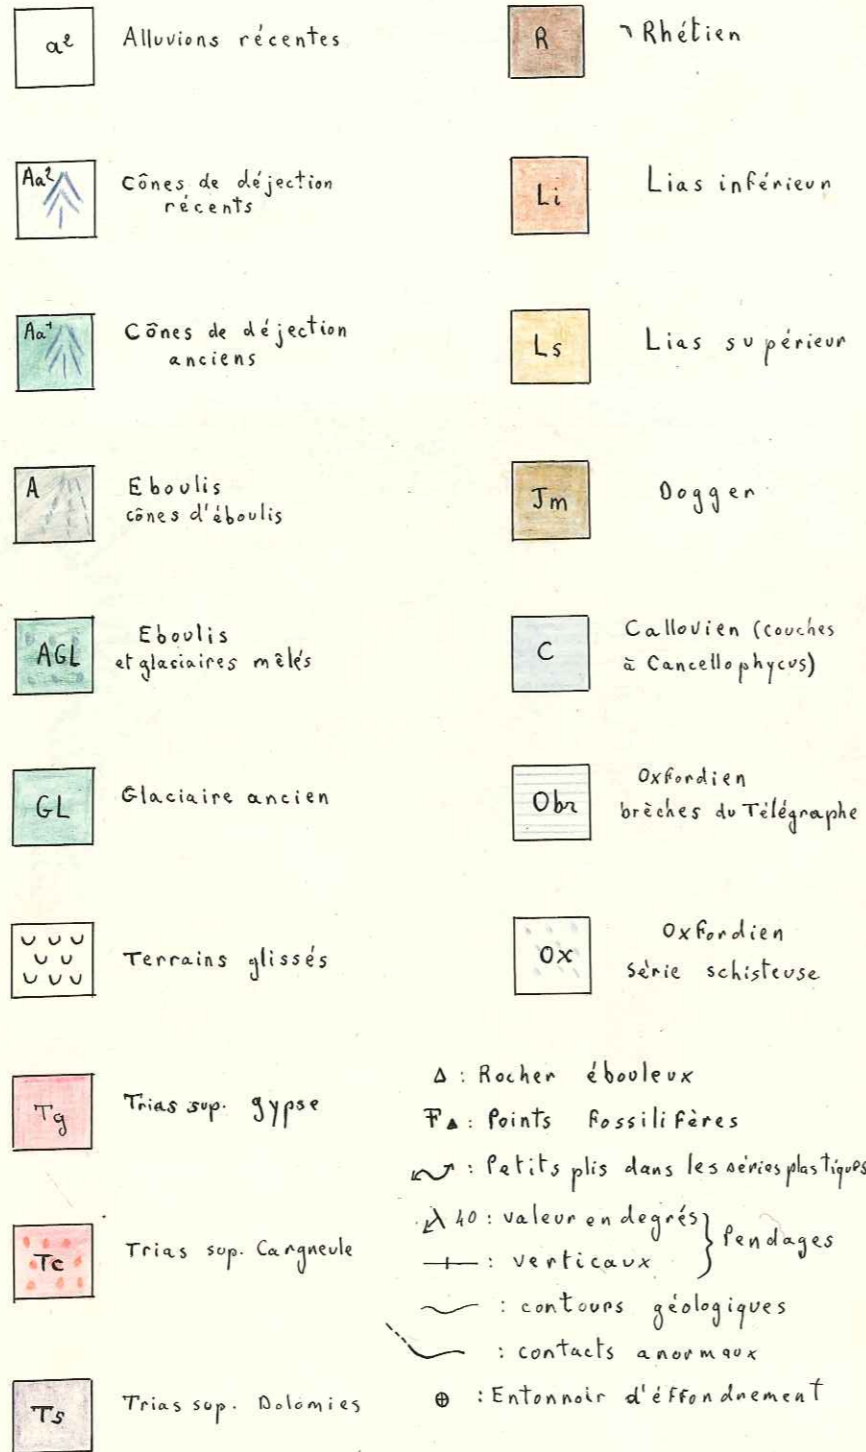 a2 Alluvions récentes
Aa2 Cônes de déjection
récents
Aa1 Cônes de déjection
anciens
A Eboulis
cônes d'éboulis
AGL Eboulis
et glaciaires mêlés
GL Glaciaire ancien
Terrains glissés
Tg Trias sup. gypse
Tc Trias sup. Cargneule
Ts Trias sup. Dolomies
R Rhétien
Li Lias inférieur
Ls Lias supérieur
Jm Dogger
C Callovien (couches
à Cancellophycus)
Obr Oxfordien
brèches du Télégraphe
Ox Oxfordien
série schisteuse
Δ : Rocher ébouleux
F▲ : Points fossilifères
: Petits plis dans les séries plastiques
40 : valeur en degrés
: verticaux
} Pendages
: contours géologiques
: contacts anormaux
⊕ : Entonnoir d'éffondrement